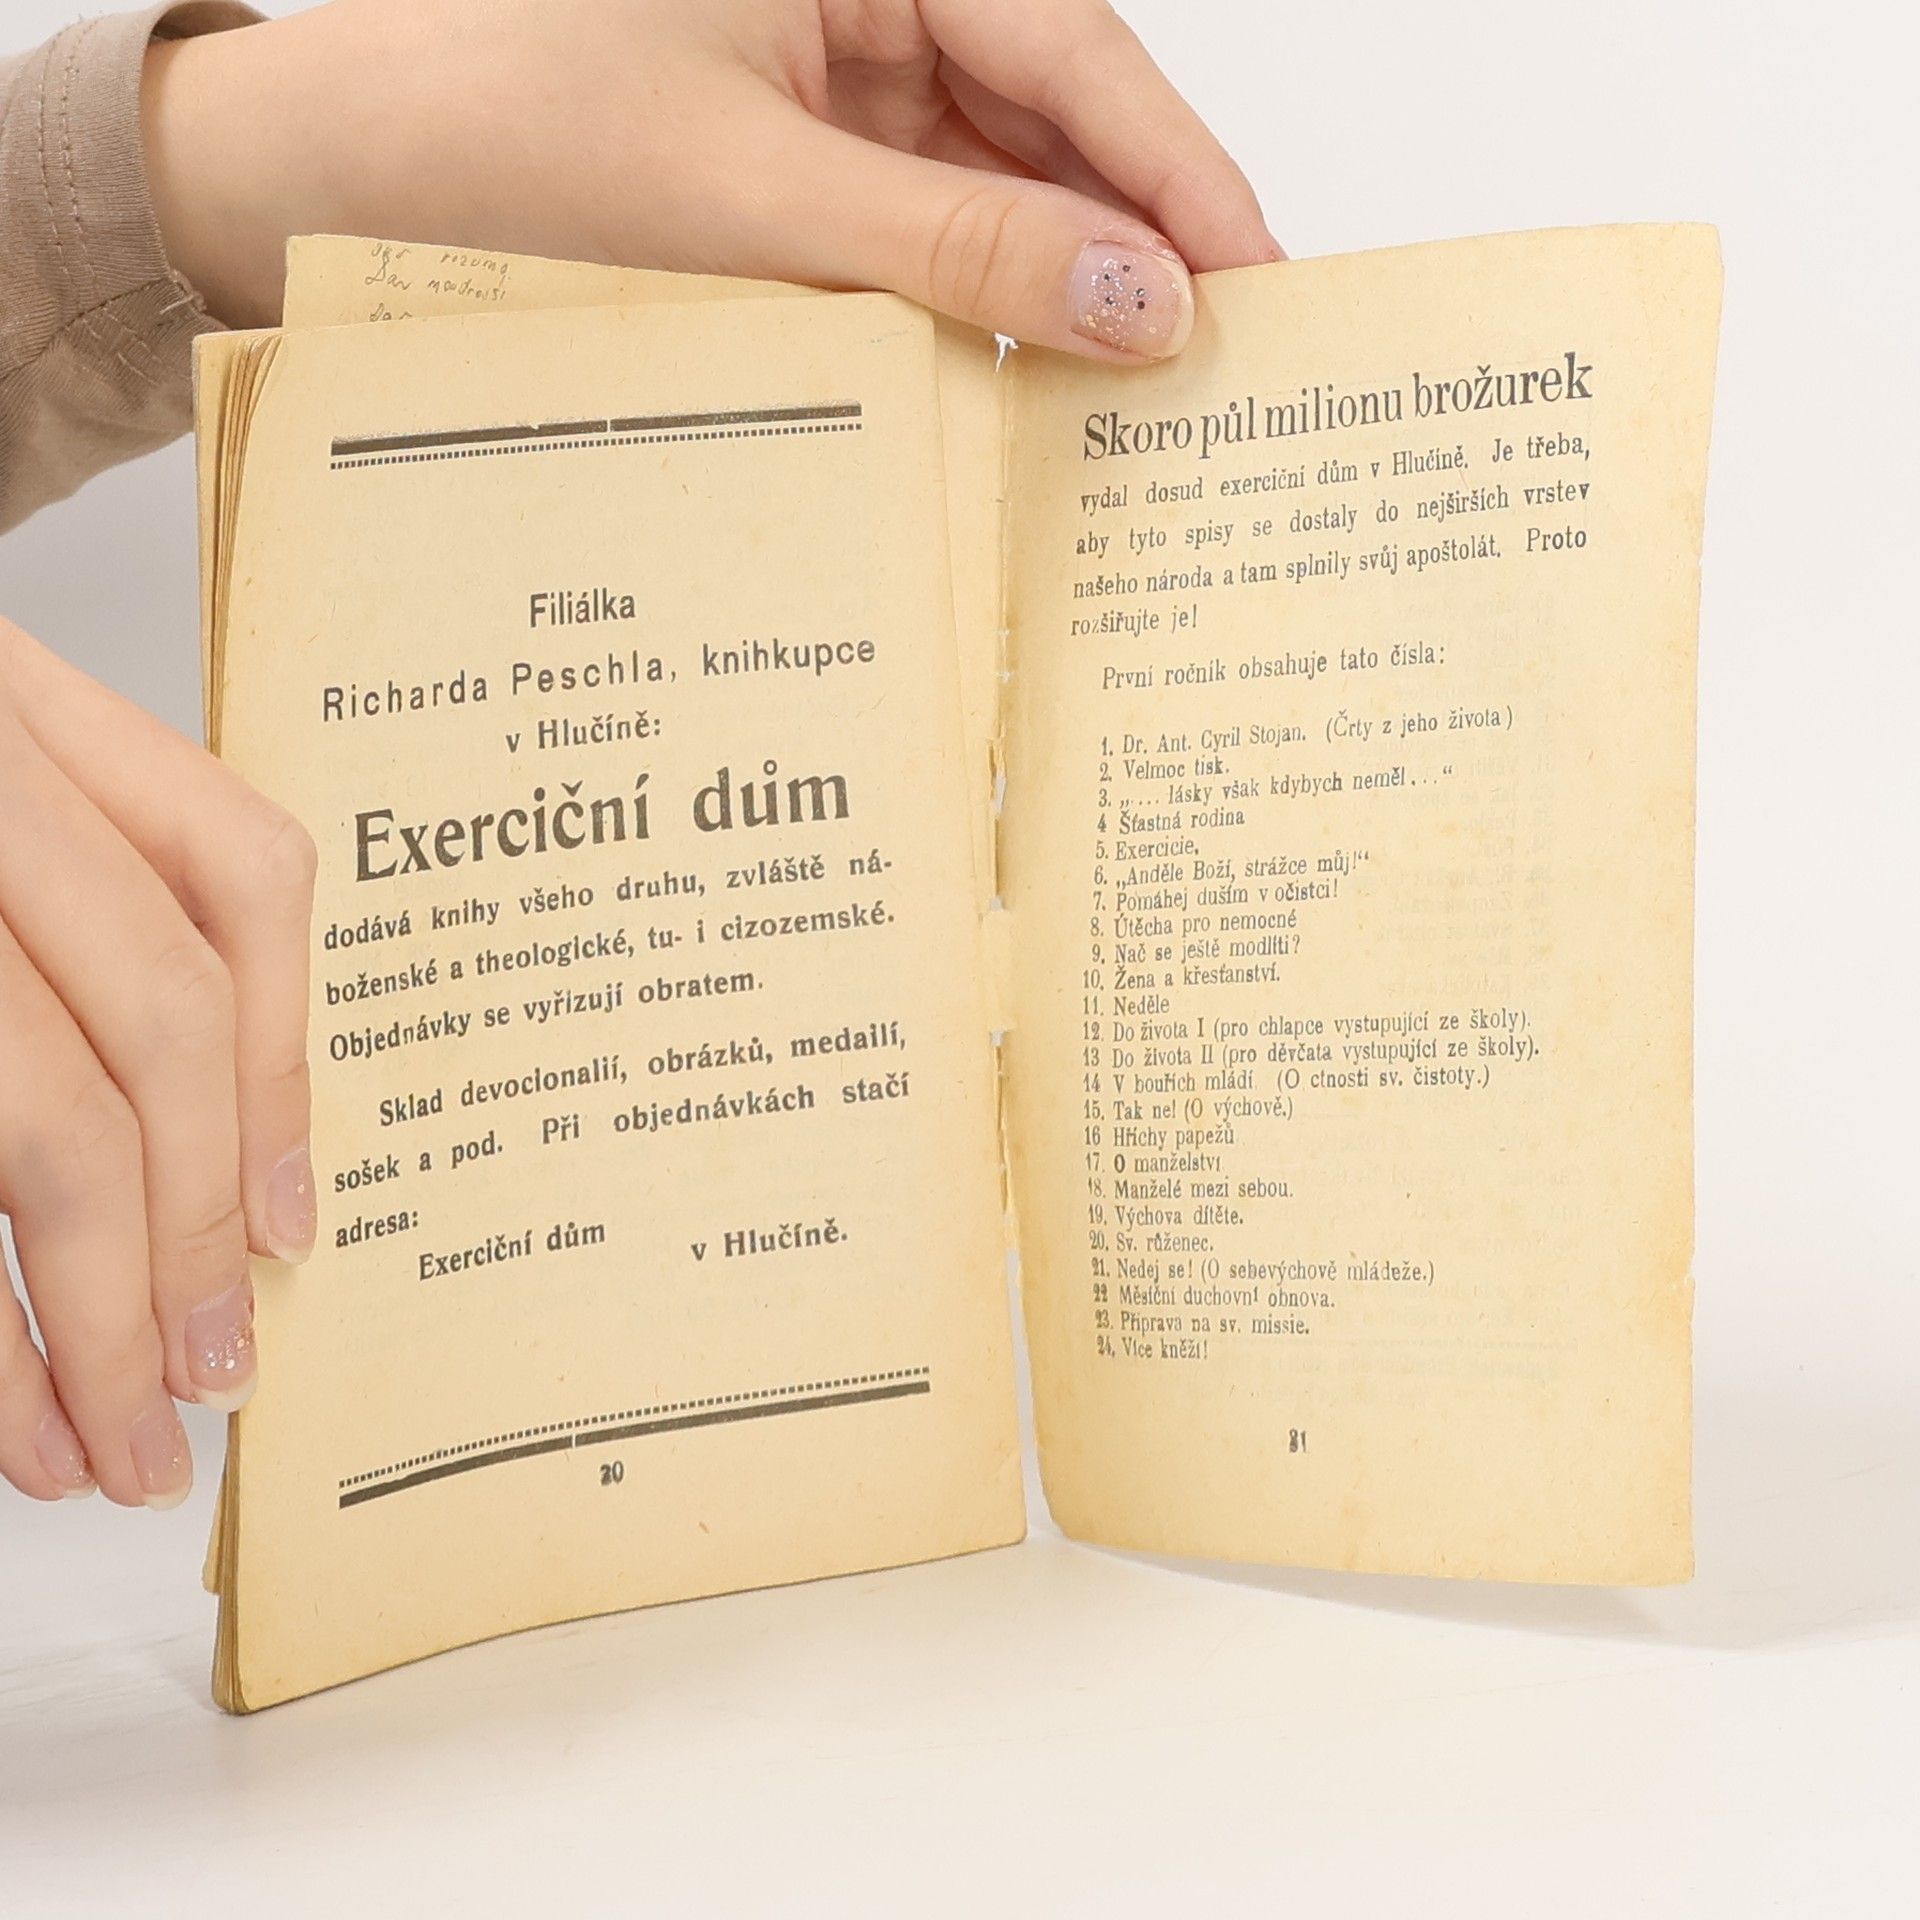 rozumu
Dar moudrosti
Dar
Filiálka
Richarda Peschla, knihkupce
v Hlučíně:
Exerciční dům
dodává knihy všeho druhu, zvláště ná-
boženské a theologické, tu- i cizozemské.
Objednávky se vyřizují obratem.
Sklad devocionalií, obrázků, medailí,
sošek a pod. Při objednávkách stačí
adresa:
Exerciční dům v Hlučíně.
20
Skoro půl milionu brožurek
vydal dosud exerciční dům v Hlučíně. Je třeba,
aby tyto spisy se dostaly do nejširších vrstev
našeho národa a tam splnily svůj apoštolát. Proto
rozšiřujte je!
První ročník obsahuje tato čísla:
1. Dr. Ant. Cyril Stojan. (Črty z jeho života)
2. Velmoc tisk.
3. „.... lásky však kdybych neměl..."
4 Šťastná rodina
5. Exercicie.
6. „Anděle Boží, strážce můj!"
7. Pomáhej duším v očistci!
8. Útěcha pro nemocné
9. Nač se ještě modliti?
10. Žena a křesťanství.
11. Neděle
12. Do života I (pro chlapce vystupující ze školy).
13 Do života II (pro děvčata vystupující ze školy).
14 V bouřích mládí (O ctnosti sv. čistoty.)
15. Tak ne! (O výchově.)
16 Hříchy papežů
17. O manželství
18. Manželé mezi sebou.
19. Výchova dítěte.
20. Sv. růženec.
21. Nedej se! (O sebevýchově mládeže.)
22 Měsíční duchovní obnova.
23. Příprava na sv. missie.
24. Více kněží!